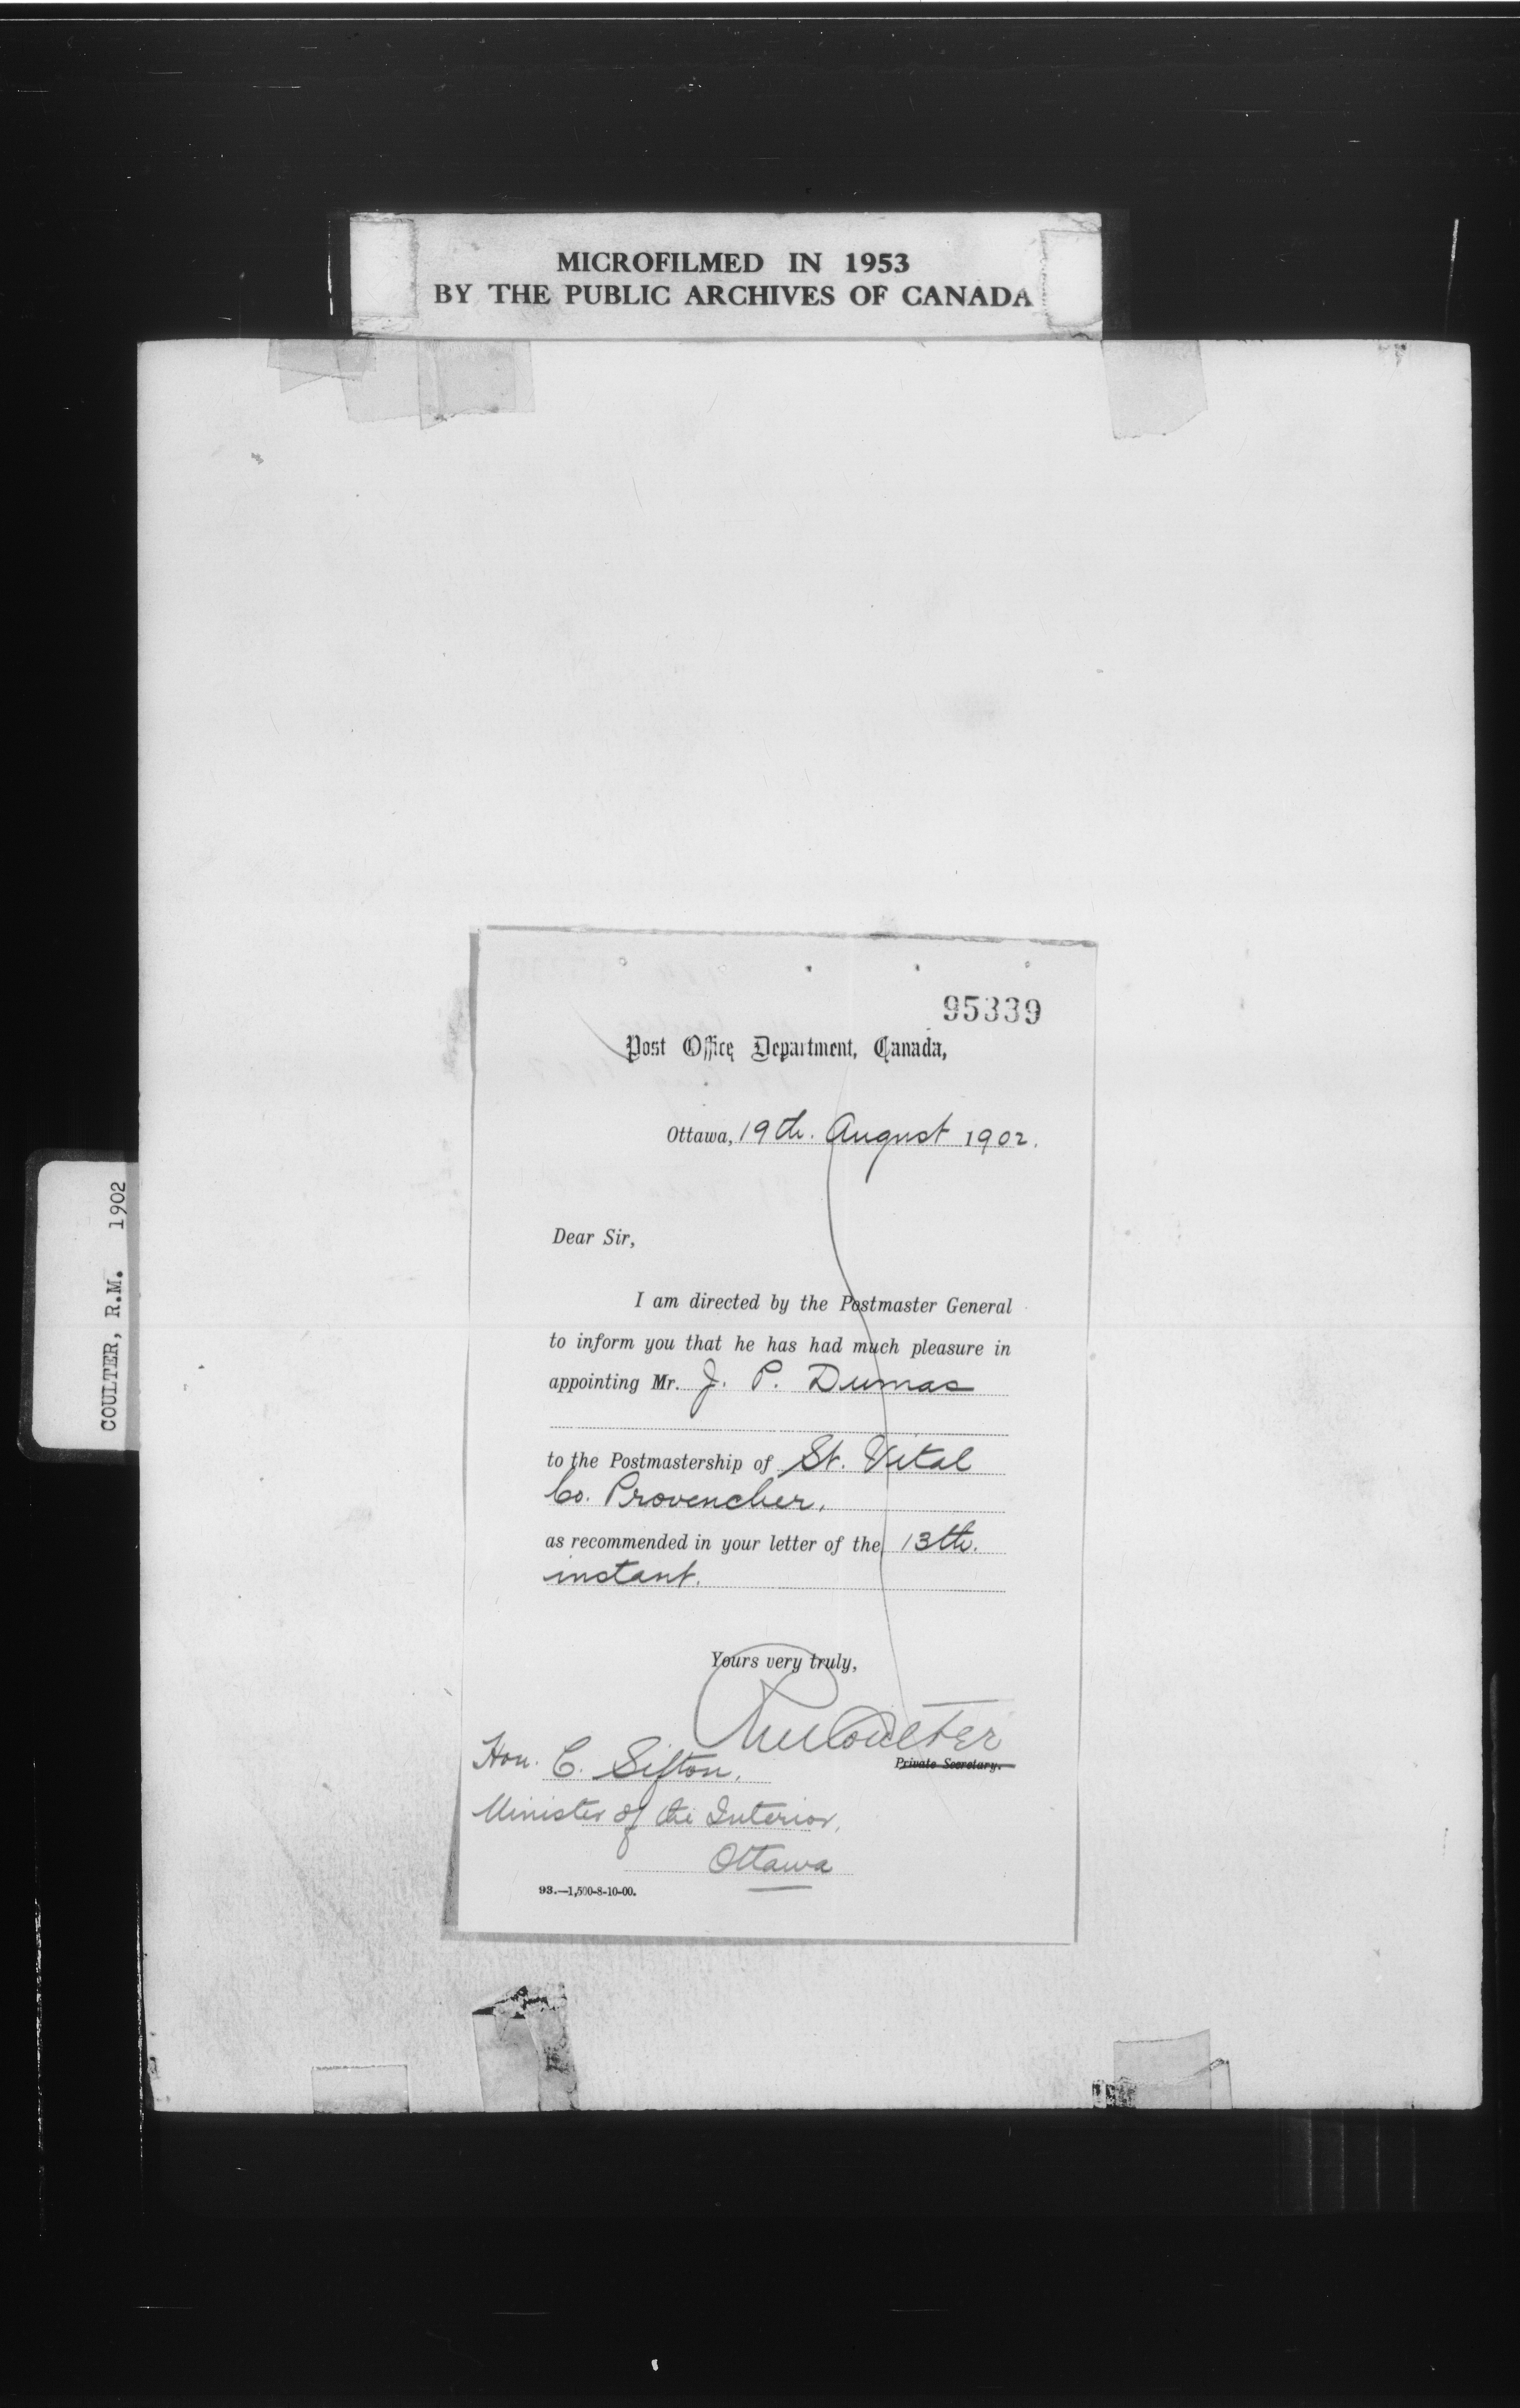 MICROFILMED IN 1953
BY THE PUBLIC ARCHIVES OF CANADA
COULTER, R.M. 1902
95339
Post Office Department, Canada,
Ottawa, 19th. August 1902.
Dear Sir,
I am directed by the Postmaster General
to inform you that he has had much pleasure in
appointing Mr. J. P. Dumas
to the Postmastership of St. Vital
Co. Provencher,
as recommended in your letter of the 13th.
instant.
Yours very truly,
RMCoulter
Private Secretary.
Hon. C. Sifton,
Minister of the Interior,
Ottawa
93.—1,500-8-10-00.